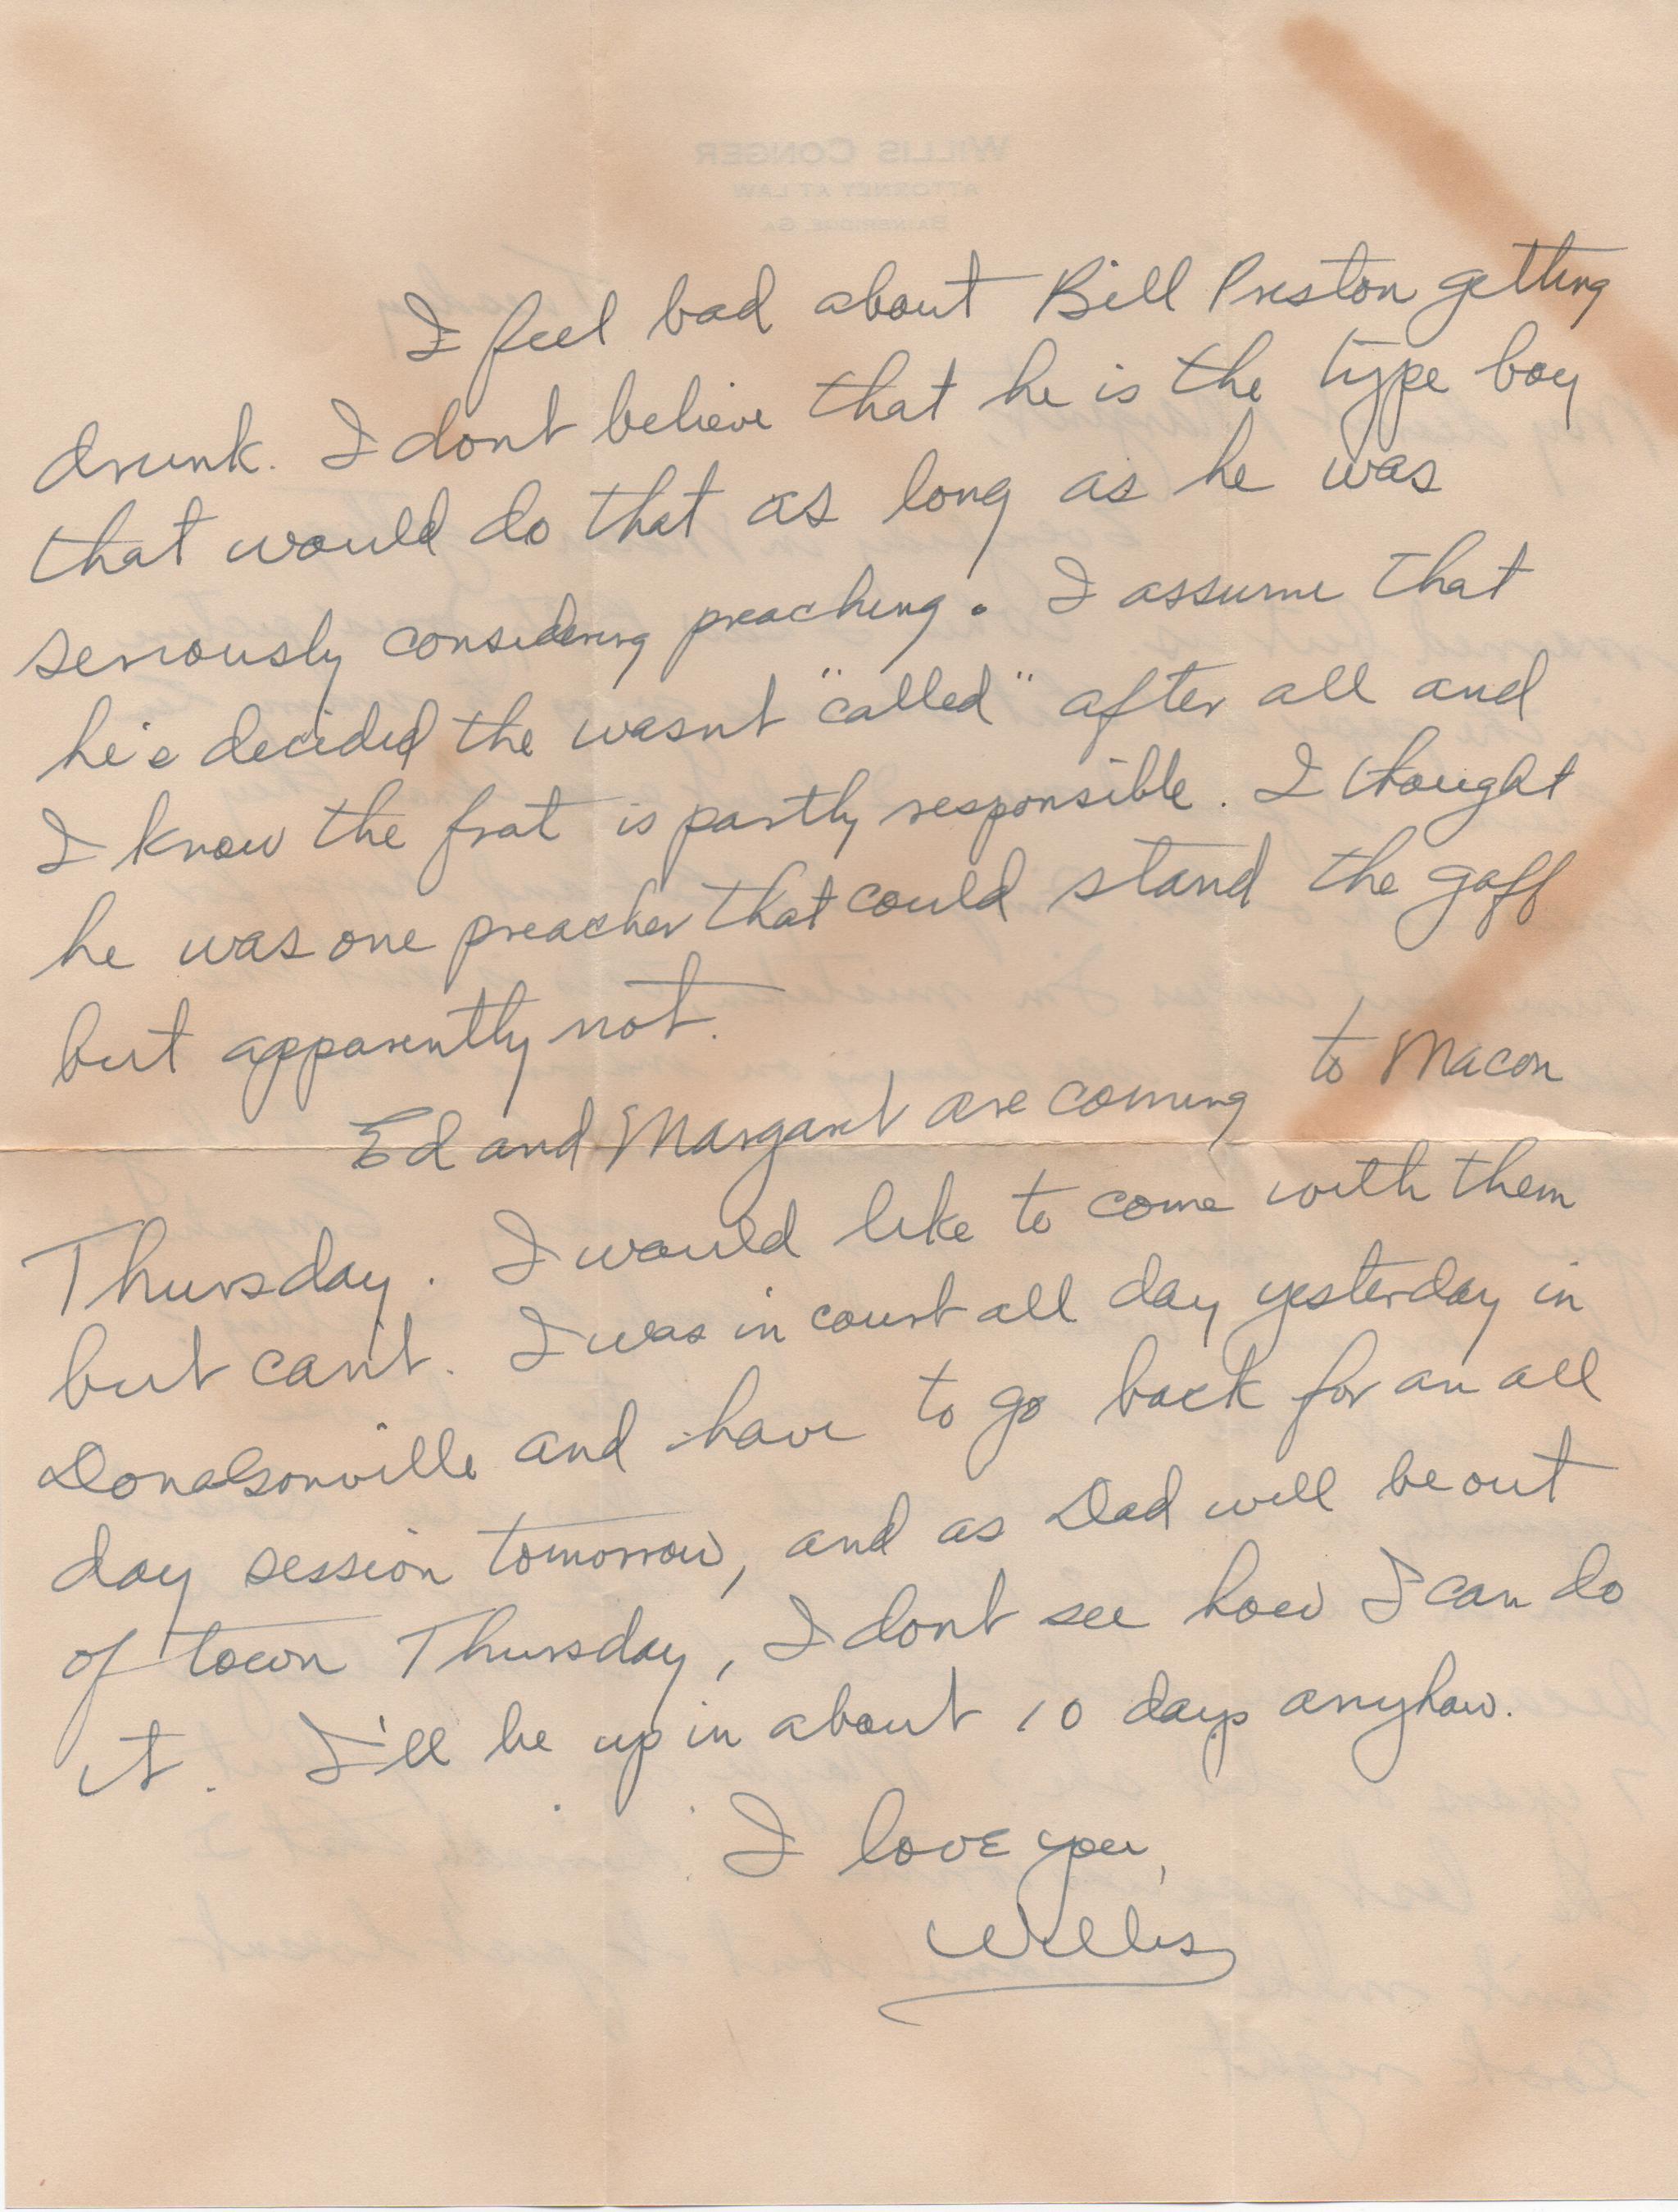 WILLIS CONGER
ATTORNEY AT LAW
BAINBRIDGE, GA.
I feel bad about Bill Preston getting
drunk. I dont believe that he is the type boy
that would do that as long as he was
seriously considering preaching. I assume that
he's decided the wasnt "called" after all and
I know the frat is partly responsible. I thought
he was one preacher that could stand the gaff
but apparently not.
Ed and Margaret are coming to Macon
Thursday. I would like to come with them
but can't. I was in court all day yesterday in
Donalsonville and have to go back for an all
day session tomorrow, and as Dad will be out
of town Thursday, I dont see how I can do
it. I'll be up in about 10 days anyhow.
I love you,
Willis